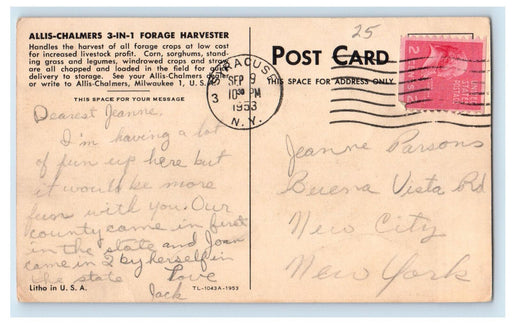 ALLIS-CHALMERS 3-IN-1 FORAGE HARVESTER
Handles the harvest of all forage crops at low cost
for increased livestock profit. Corn, sorghums, stand-
ing grass and legumes, windrowed crops and straw
are all chopped and loaded in the field for
delivery to storage. See your Allis-Chalmers dealer
or write to Allis-Chalmers, Milwaukee 1, U.S.A.
THIS SPACE FOR YOUR MESSAGE
Dearest Jeanne,
I'm having a lot
of fun up here but
it would be more
fun with you. Our
county came in first
in the state and Joan
came in 2 by herself in
the state
Love
Jack
Litho in U. S. A.
TL-1042A-1953
SYRACUSE
3
SEP 9
10 30 PM
1953
N.Y.
25
POST CARD
THIS SPACE FOR ADDRESS ONLY
2
Jeanne Parsons
Buena Vista Rd
New City
New York